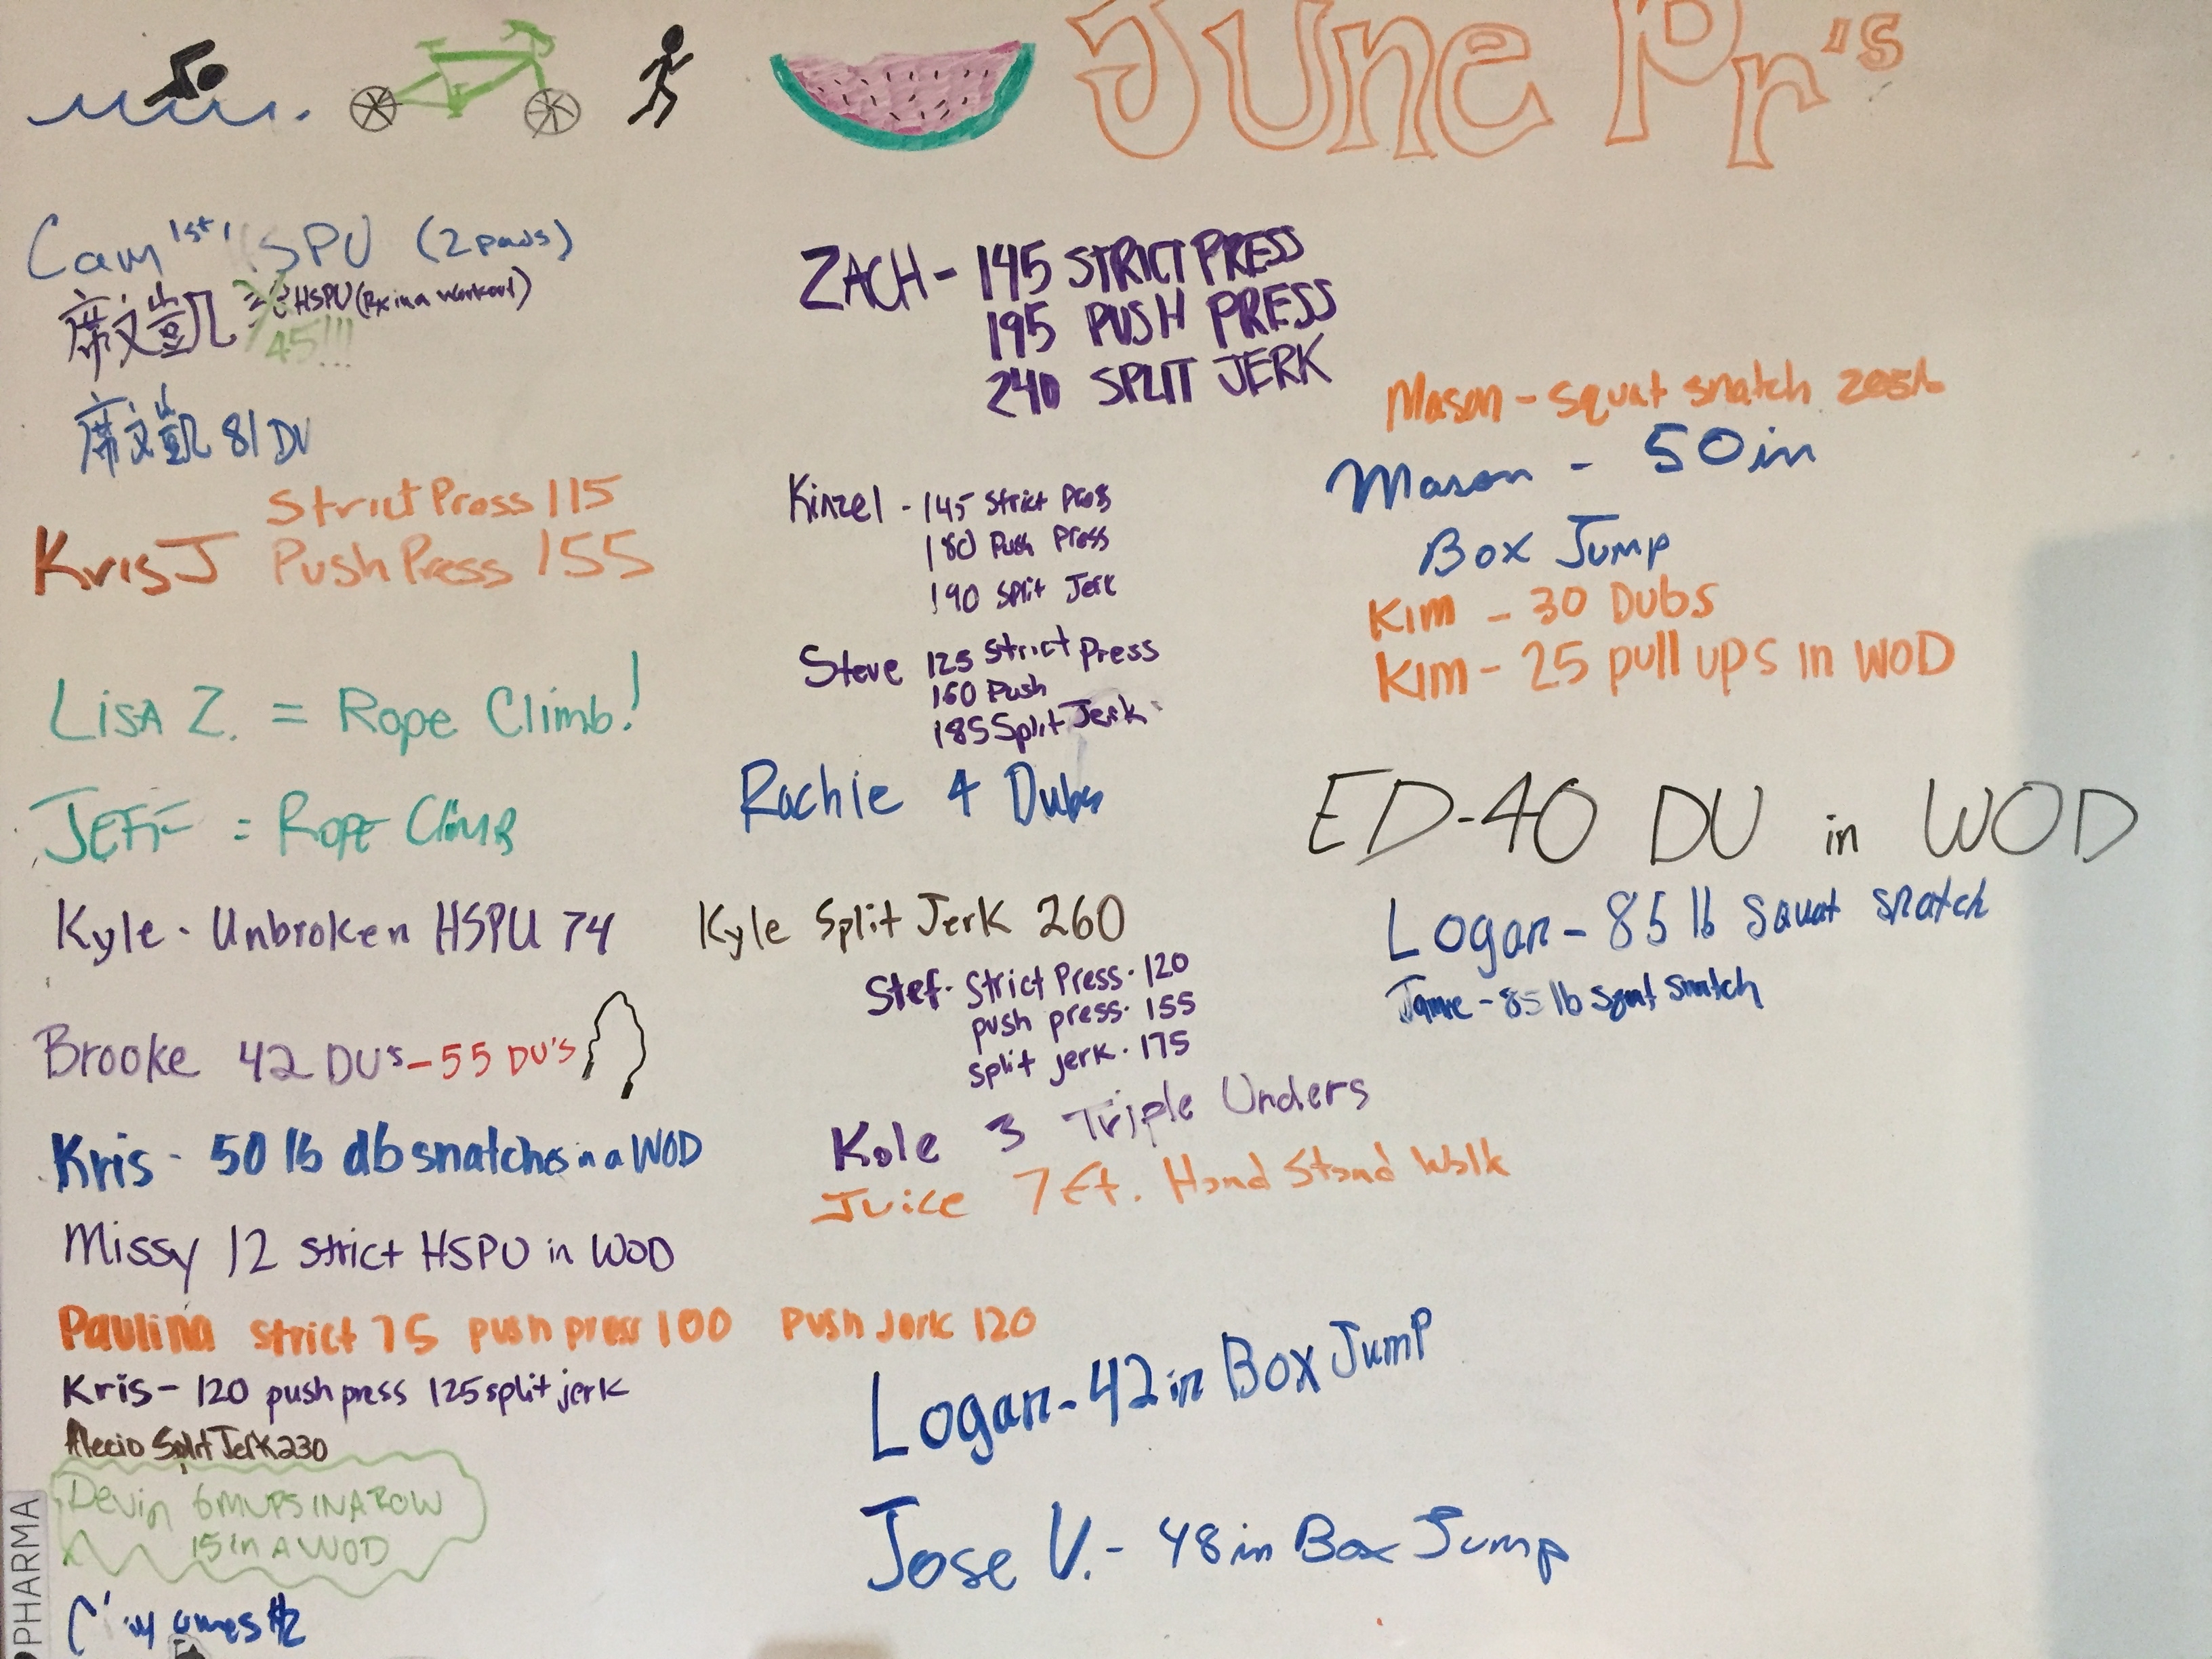 June Pr's
Cam 1st HSPU (2 pads)
席文凱 HSPU (Rx in a workout)
45!!!
席文凱 81 DU
Strict Press 115
Kris J Push Press 155
LISA Z. = Rope Climb!
JEFF = ROPE CLIMB
Kyle - Unbroken HSPU 74
Brooke 42 DU's - 55 DU'S
Kris - 50 lb db snatches in a WOD
Missy 12 strict HSPU in WOD
Paulina strict 75 push press 100 push Jerk 120
Kris - 120 push press 125 split jerk
Alecio Split Jerk 230
Devin 6 MUPS IN A ROW
15 in A WOD
ZACH - 145 STRICT PRESS
195 PUSH PRESS
240 SPLIT JERK
Kinzel - 145 Strict Press
180 Push Press
190 Split Jerk
Steve 125 Strict Press
160 Push
185 Split Jerk
Rachie 4 Dubs
Kyle Split Jerk 260
Stef - Strict Press - 120
push press - 155
split jerk - 175
Kole 3 Triple Unders
Juice 7 ft. Hand Stand Walk
Logan - 42 in Box Jump
Jose V. - 48 in Box Jump
Mason - squat snatch 205lb
Mason - 50 in
Box Jump
Kim - 30 Dubs
Kim - 25 pull ups in WOD
ED - 40 DU in WOD
Logan - 85 lb Squat snatch
Jamie - 85 lb squat snatch
PHARMA